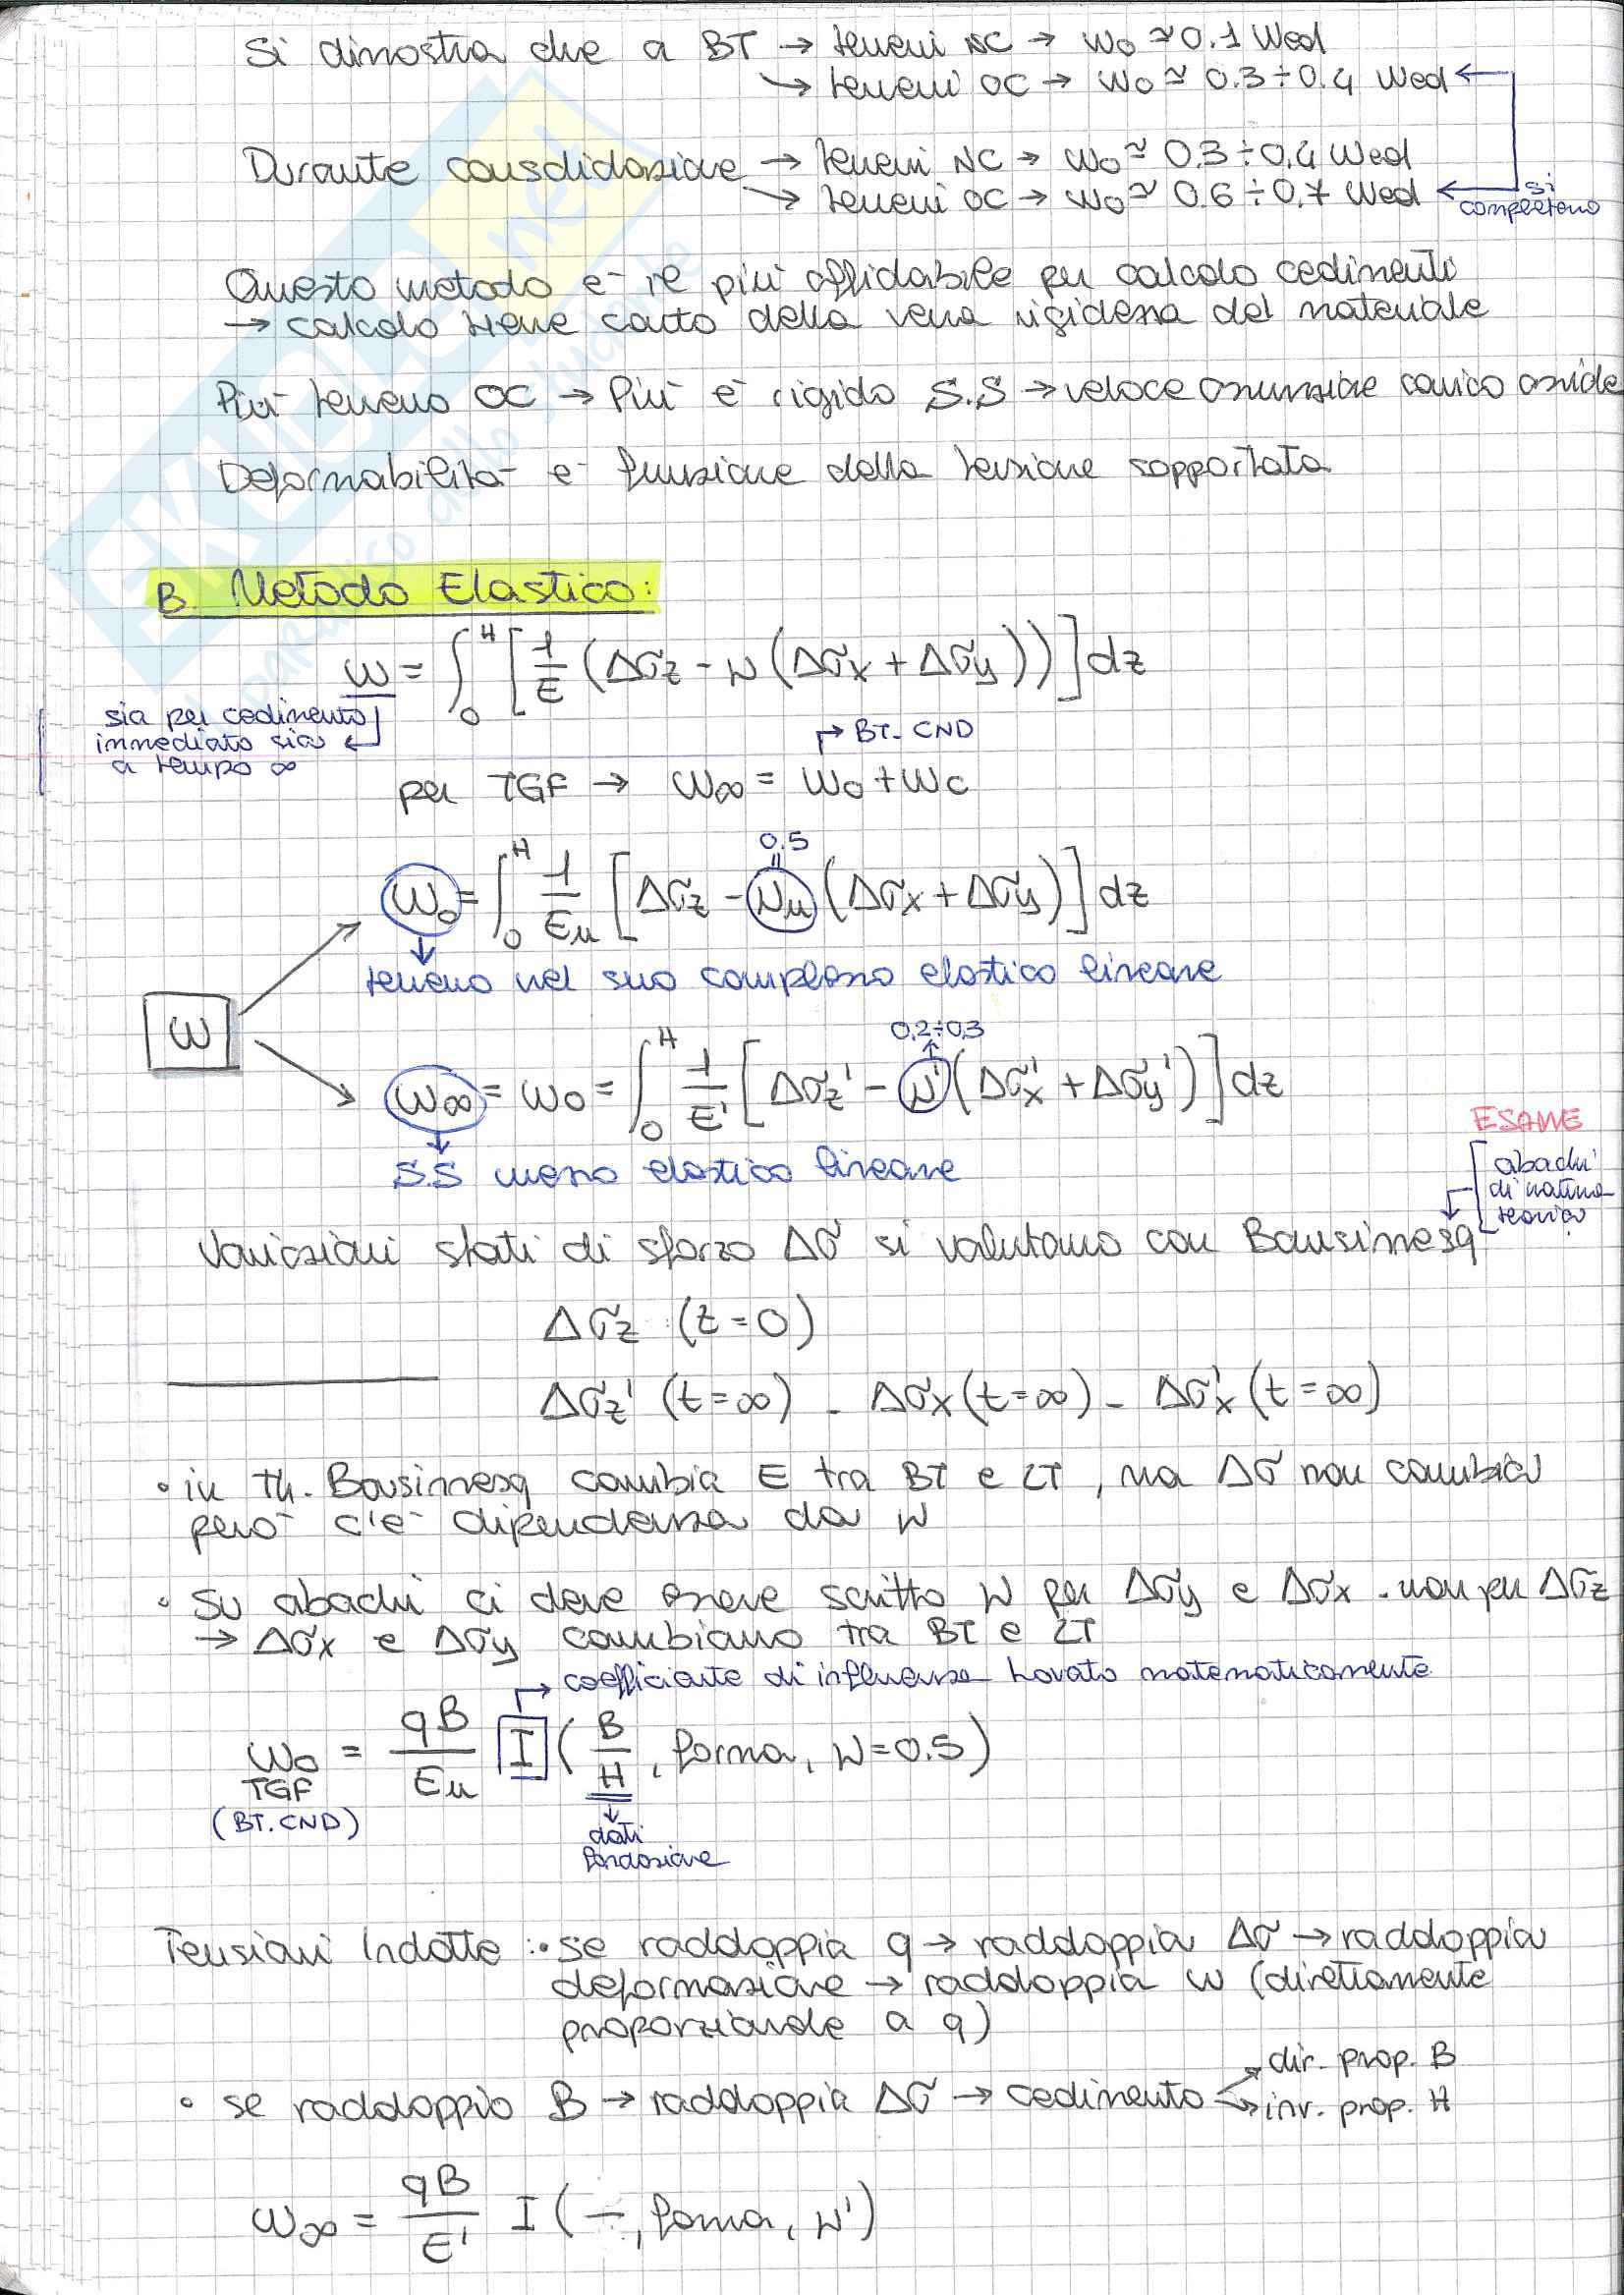 Si dimostra che a BT → terreni NC → w₀ ≃ 0.1 Wed
→ terreni OC → w₀ ≃ 0.3÷0.4 Wed ←
Durante consolidazione → terreni NC → w₀ ≃ 0.3÷0.4 Wed
→ terreni OC → w₀ ≃ 0.6÷0.7 Wed ← si
completano
Questo metodo è il più affidabile per calcolo cedimenti
→ calcolo tiene conto della vera rigidezza del materiale
Più terreno OC → Più è rigido S.S → veloce assunzione carico
Deformabilità è funzione della tensione sopportata
B. Metodo Elastico:
w = ∫₀ᴴ [1/E (Δσz - ν (Δσx + Δσy))] dz
sia per cedimento
immediato sia ←
a tempo ∞
→ BT. CND
per TGF → w∞ = w₀ + wc
0.5
w₀ = ∫₀ᴴ 1/Eu [Δσz - νu (Δσx + Δσy)] dz
terreno nel suo complesso elastico lineare
w
0.2÷0.3
w∞ = w₀ = ∫₀ᴴ 1/E' [Δσz' - ν' (Δσx' + Δσy')] dz
S.S mezzo elastico lineare
ESAME
abachi
di natura
teorica
Variazioni stati di sforzo Δσ si valutano con Bousinnesq
Δσz (t=0)
Δσz' (t=∞) - Δσx (t=∞) - Δσx' (t=∞)
• in Th. Bousinnesq cambia E tra BT e LT, ma Δσ non cambia
però c'è dipendenza da ν
• Su abachi ci deve essere scritto ν per Δσy e Δσx - non per Δσz
→ Δσx e Δσy cambiano tra BT e LT
→ coefficiente di influenza trovato matematicamente
w₀ = qB/Eu I (B/H, forma, ν=0.5)
TGF
(BT. CND)
dati
fondazione
Tensioni Indotte : • se raddoppia q → raddoppia Δσ → raddoppia
deformazione → raddoppia w (direttamente
proporzionale a q)
dir. prop. B
• se raddoppio B → raddoppia Δσ → cedimento
inv. prop. H
w∞ = qB/E' I (—, forma, ν')